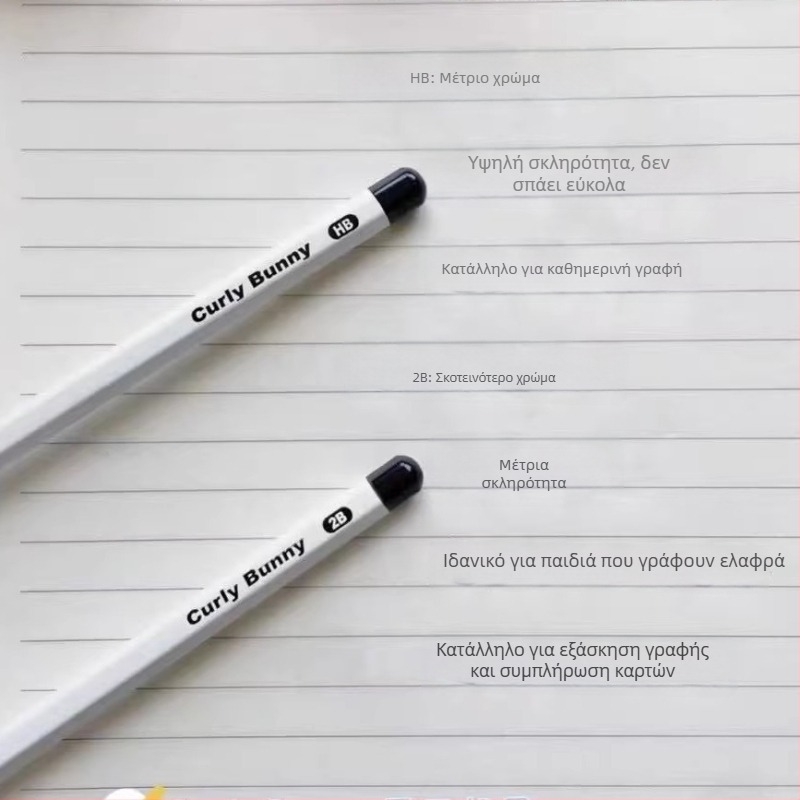 HB: Μέτριο χρώμα
Υψηλή σκληρότητα, δεν
σπάει εύκολα
HB
Curly Bunny
Κατάλληλο για καθημερινή γραφή
2B: Σκοτεινότερο χρώμα
Μέτρια
σκληρότητα
2B
Curly Bunny
Ιδανικό για παιδιά που γράφουν ελαφρά
Κατάλληλο για εξάσκηση γραφής
και συμπλήρωση καρτών